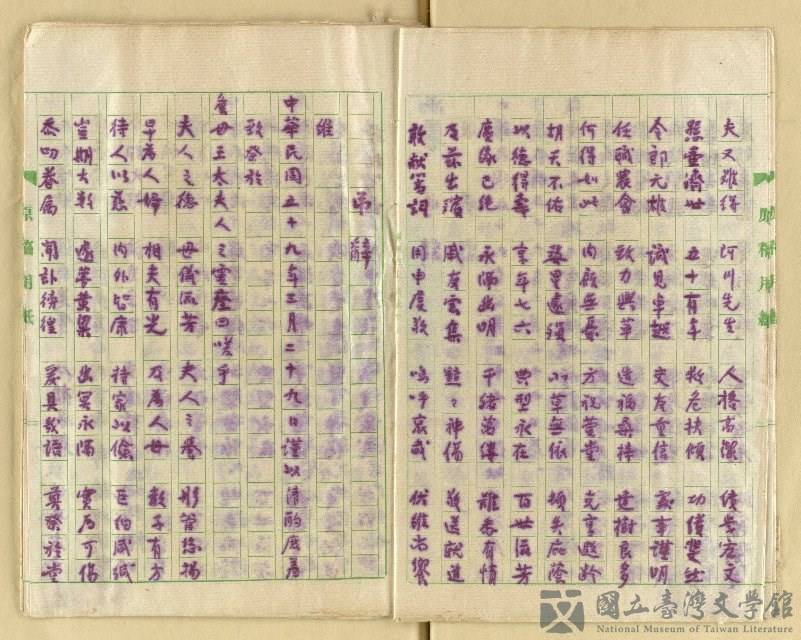 夫又難得 阿川先生 人格高潔 績學宏文
懸壺濟世 五十有年 救危扶傾 功績斐然
令郎元雄 識見卓越 交友重信 家事謹明
任職農會 致力興革 造福桑梓 建樹良多
何得如此 內顧無憂 方祝萱堂 克享遐齡
胡天不佑 婺星遽殞 小草無依 頓失庇蔭
以德得壽 享年七六 典型永在 百世流芳
塵緣已絕 永隔幽明 千緒萬縷 難表有情
及茲出殯 戚友雲集 黯々神傷 敬送歸道
敬獻蕪詞 用申虔敬 嗚呼哀哉 伏維尚饗
弟
維
中華民國五十九年三月二十九日謹以清酌庶羞
致祭於
王太夫人之靈座曰嗟乎
夫人之德 母儀流芳 夫人之譽 彤管傳揚
早為人婦 相夫有光 及為人母 教子有方
待人以慈 內外皆康 持家以儉 巨細咸
豈期大數 遽夢黃粱 幽冥永隔 實為可傷
忝叨眷屬 聞訃徬徨 爰具數語 奠祭於堂
原稿用紙
原稿用紙
國立臺灣文學館
National Museum of Taiwan Literature